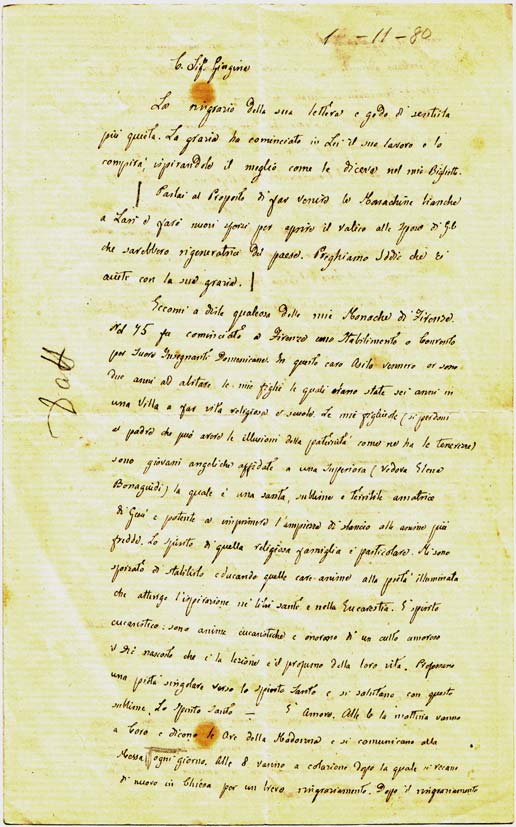 1 -11-80
C. Sig. Giorgina
La ringrazio della sua lettera e godo di sentirla
più quieta. La grazia ha cominciato in Lei il suo lavoro e lo
compirà, ispirandole il meglio come le dicevo nel mio Biglietto.
Parlai al Proposto di far venire le Monachine bianche
a Lari e farò nuovi sforzi per aprire il valico alle Spose di G.C.
che sarebbero rigeneratrici del paese. Preghiamo Iddio che ci
aiuti con la sua grazia.
Eccomi a dirle qualcosa delle mie Monache di Firenze.
Nel 75 fu cominciato a Firenze uno Stabilimento o Convento
per Suore Insegnanti Domenicane. In questo caro Asilo vennero or sono
due anni ad abitare le mie figlie le quali erano state sei anni in
una Villa a far vita religiosa e scuole. Le mie figliuole (si perdoni
al padre che può avere le illusioni della paternità come ne ha le tenerezze)
sono giovani angeliche affidate a una Superiora (Vedova Elena
Bonaguidi) la quale è una santa, sublime e terribile amatrice
di Gesù e potente a imprimere l'ampiezza di slancio alle anime più
fredde. Lo spirito di quella religiosa famiglia è particolare. Mi sono
sforzato di stabilirlo educando quelle care anime alla pietà illuminata
che attinge l'ispirazione ne' libri santi e nella Eucarestia. È spirito
eucaristico: sono anime eucaristiche e onorano di un culto amoroso
il Dio nascosto che è la lezione e il profumo della loro vita. Professano
una pietà singolare verso lo Spirito Santo e si salutano con questo
sublime. Lo Spirito Santo — È Amore. Alle 6 la mattina vanno
a Coro e dicono le Ore della Madonna e si comunicano alla
Messa ogni giorno. Alle 8 vanno a colazione dopo la quale si recano
di nuovo in Chiesa per un breve ringraziamento. Dopo il ringraziamento